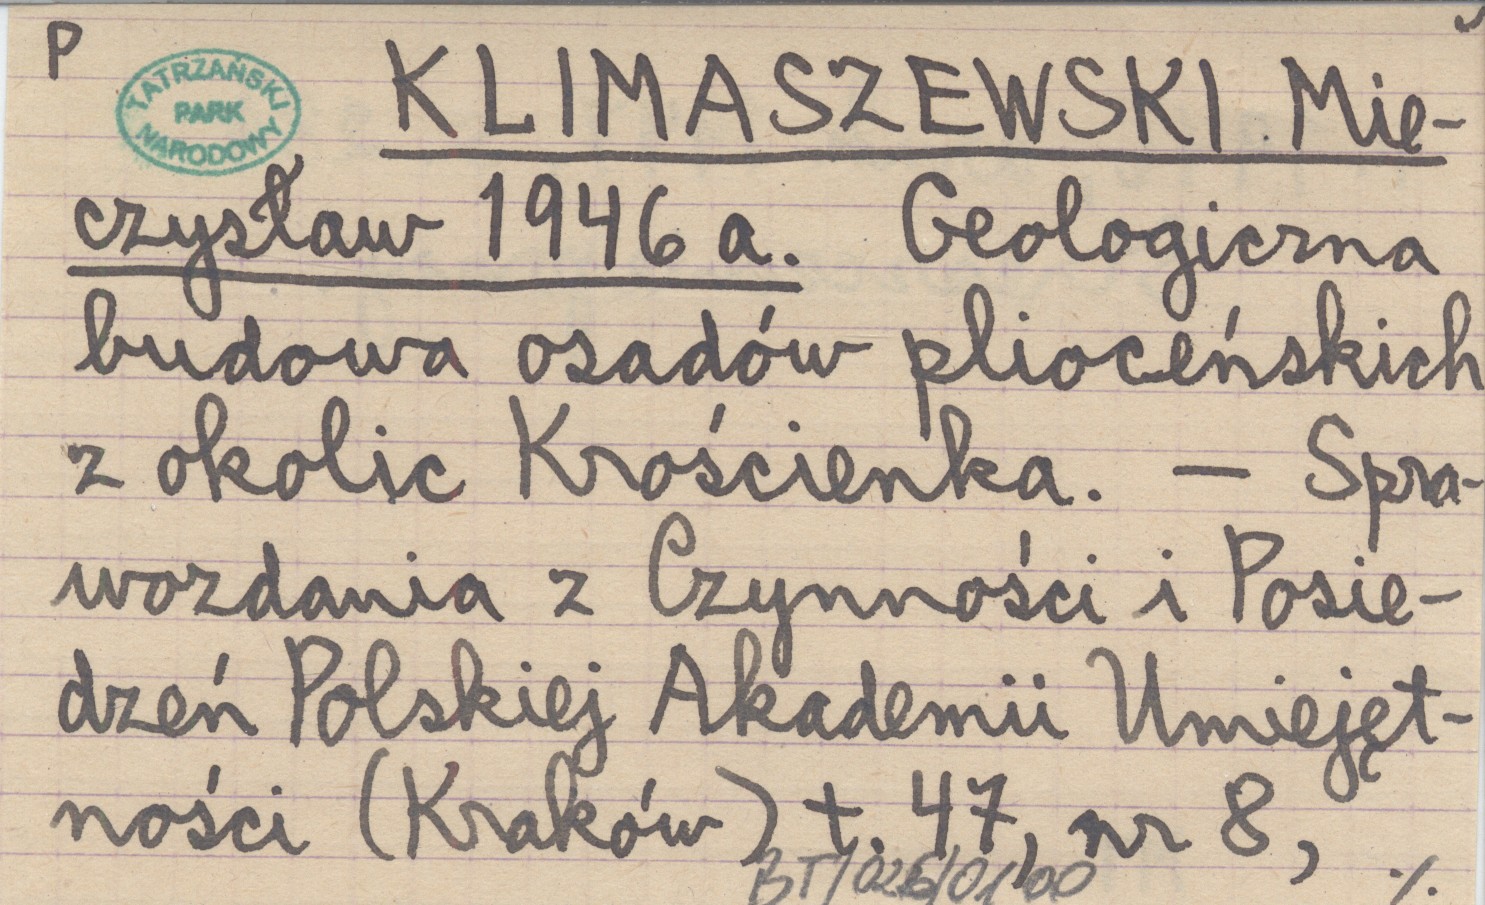 P
TATRZAŃSKI
PARK
NARODOWY
KLIMASZEWSKI Mie-
czysław 1946 a. Geologiczna
budowa osadów plioceńskich
z okolic Krościenka. — Spra-
wozdania z Czynności i Posie-
dzeń Polskiej Akademii Umiejęt-
ności (Kraków) t. 47, nr 8,
./.